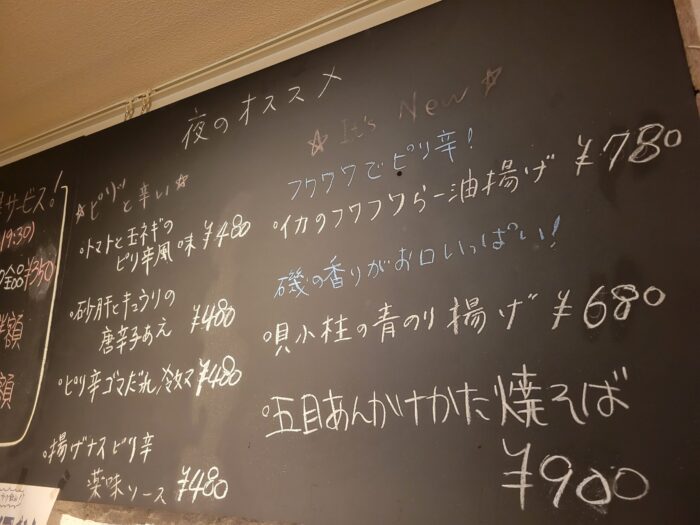 夜のオススメ
サービス!
19:30)
全品¥350
半額
額
☆ピリッと辛い☆
・トマトと玉ネギの
ピリ辛風味 ¥480
・砂肝とキュウリの
唐辛子あえ ¥480
・ピリ辛ゴマだれ冷奴 ¥480
・揚げナスピリ辛
薬味ソース ¥480
☆It's New☆
フワフワでピリ辛!
・イカのフワフワらー油揚げ ¥780
磯の香りがお口いっぱい!
・貝小柱の青のり揚げ ¥680
・五目あんかけかた焼そば
¥900